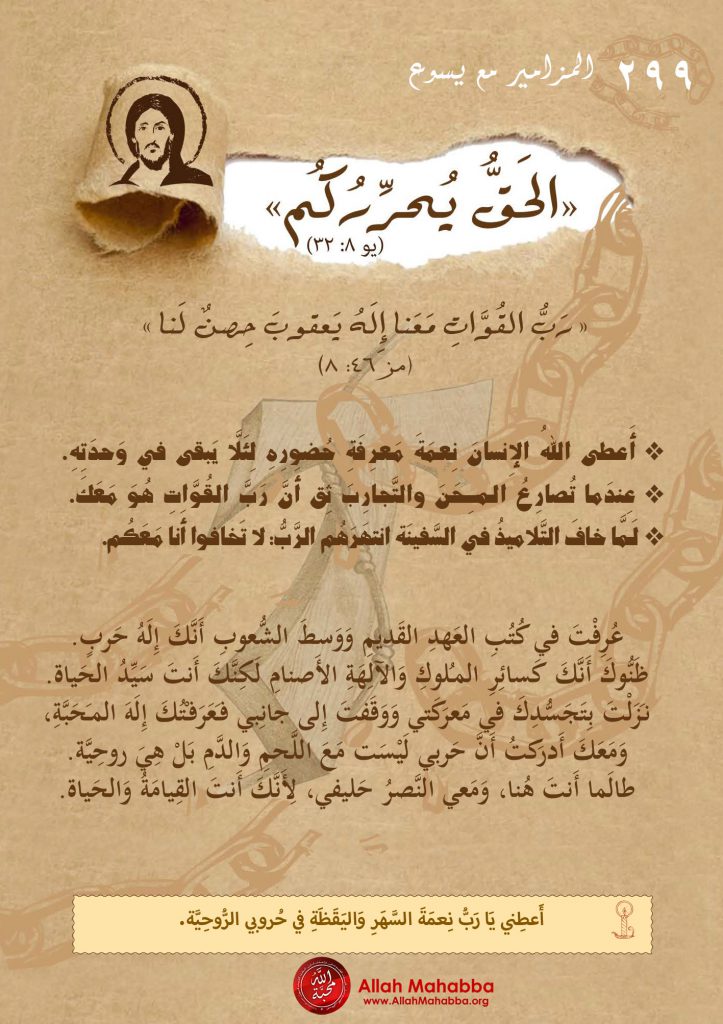 ٢٩٩ المزامير مع يسوع
«الحَقُّ يُحرِّرُكُم»
(يو ٨: ٣٢)
« رَبُّ القُوَّاتِ مَعَنا إِلَهُ يَعقوبَ حِصنٌ لَنا »
(مز ٤٦: ٨)
❖ أَعطى اللهُ الإِنسانَ نِعمَةَ مَعرِفَة حُضورِهِ لِئَلَّا يَبقى في وَحدَتِهِ.
❖ عِندَما تُصارِعُ المِحَنَ والتَّجارِبَ ثِق أنَّ رَبَّ القُوَّاتِ هُوَ مَعَكَ.
❖ لَمَّا خافَ التَّلاميذُ في السَّفينَة انتهَرَهُم الرَّبُّ: لا تَخافوا أنا مَعَكُم.
عُرِفْتَ في كُتُبِ العَهدِ القَديمِ وَوَسطَ الشُّعوبِ أَنَّكَ إِلَهُ حَربٍ.
ظَنُّوكَ أَنَّكَ كَسائِرِ المُلوكِ وَالآلِهَةِ الأَصنامِ لَكِنَّكَ أَنتَ سَيِّدُ الحَياة.
نَزَلْتَ بِتَجَسُّدِكَ في مَعرَكَتي وَوَقَفتَ إِلى جانِبي فَعَرَفتُكَ إِلَهَ المَحَبَّةِ،
وَمَعَكَ أَدرَكتُ أَنَّ حَربي لَيْسَت مَعَ اللَّحمِ وَالدَّمِ بَلْ هِيَ روحِيَّة.
طالَما أَنتَ هُنا، وَمَعي النَّصرُ حَليفي، لِأَنَّكَ أَنتَ القِيامَةُ وَالحَياة.
أَعطِني يَا رَبُّ نِعمَةَ السَّهَرِ وَاليَقَظَةِ في حُروبي الرُّوحِيَّة.
الله محبّة
Allah Mahabba
www.AllahMahabba.org